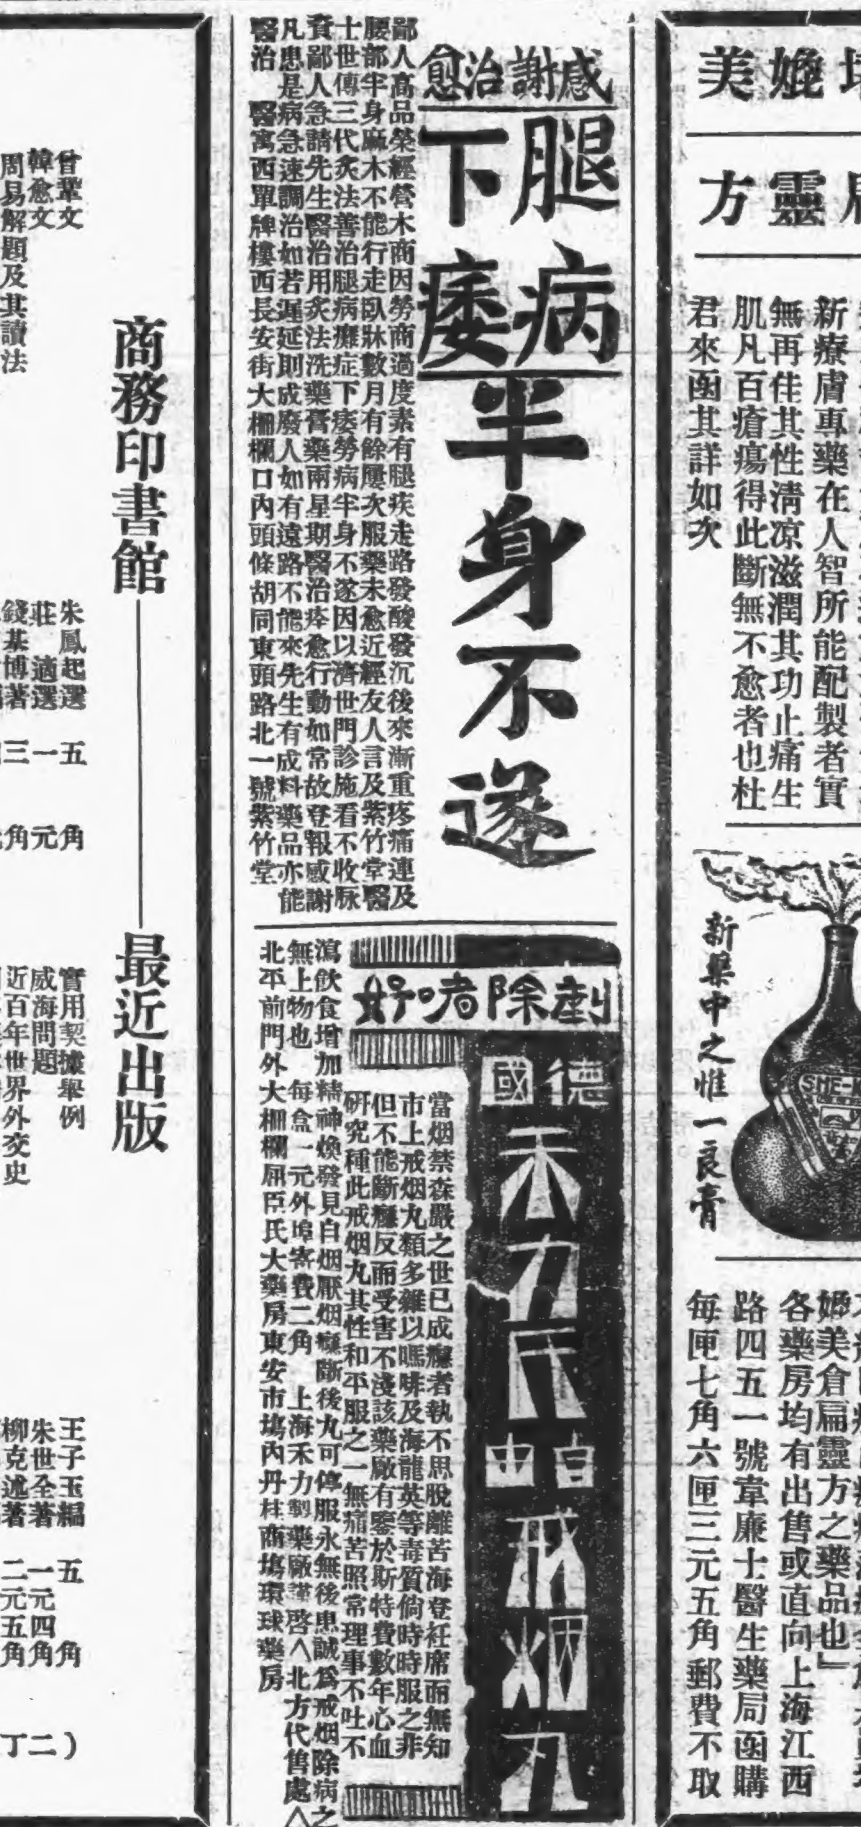 美婏
方靈
新療膚專藥在人智所能配製者實
無再佳其性清凉滋潤其功止痛生
肌凡百瘡瘍得此斷無不愈者也杜
君來函其詳如次
新藥中之惟一良膏
SHE-
婏美倉扁靈方之藥品也』
各藥房均有出售或直向上海江西
路四五一號韋廉士醫生藥局函購
每匣七角六匣三元五角郵費不取
感謝治愈
腿病
下痿
半身不遂
鄙人高品榮經營木商因勞商過度素有腿疾走路發酸發沉後來漸重疼痛連及
腰部半身麻木不能行走臥牀數月有餘屢次服藥未愈近經友人言及紫竹堂醫
士世傳三代炙法善治腿病癱症下痿勞病半身不遂因以濟世門診施看不收脉
資鄙人急請先生醫治用炙法洗藥膏藥兩星期醫治痊愈行動如常故登報感謝
凡患是病急速調治如若遲延則成廢人如有遠路不能來先生有成料藥品亦能
醫治　醫寓西單牌樓西長安街大柵欄口內頭條胡同東頭路北一號紫竹堂
剷除嗜好
德國
禾力氏
自由
戒烟丸
當烟禁森嚴之世已成癮者孰不思脫離苦海登衽席而無知
市上戒烟丸類多雜以嗎啡及海龍英等毒質倘時時服之非
但不能斷癮反而受害不淺該藥廠有鑒於斯特費數年心血
研究種此戒烟丸其性和平服之一無痛苦照常理事不吐不
瀉飲食增加精神煥發見自烟厭烟癮斷後丸可停服永無後患誠爲戒烟除病之
無上物也　每盒一元外埠寄費二角　上海禾力製藥廠謹啓∧北方代售處∧
北平前門外大柵欄屈臣氏大藥房東安市塲內丹桂商塲環球藥房
商務印書館——最近出版
曾鞏文　朱鳳起選　五角
韓愈文　莊適選　一元
周易解題及其讀法　錢基博著　三角
實用契據舉例　王子玉編　五角
威海問題　朱世全著　一元四角
近百年世界外交史　柳克述著　二元五角
丁二）